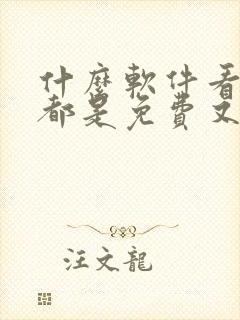 什麼軟件看
都是免費又
汪文龍